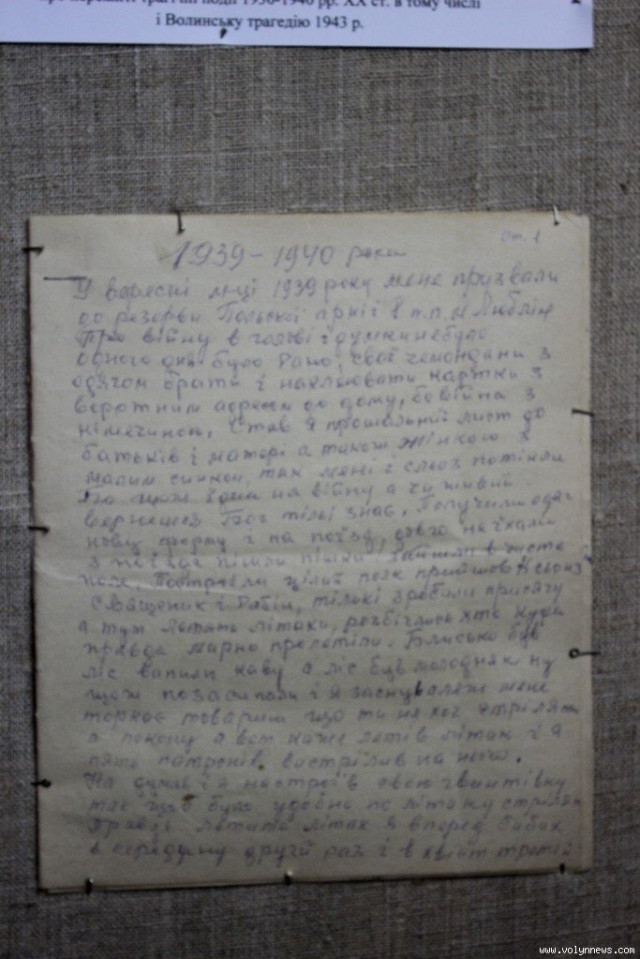 про пережиті трагічні події 1930-1940 рр. ХХ ст. в тому числі
і Волинську трагедію 1943 р.
ст. 1
1939 – 1940 роки
У вересні м-ці 1939 року мене призвали
до резерви Польскій армії в п.п. м Люблін
Про війну в голові і думки небуло
одного дня було дано, свої чемондани з
одягом брати і наклеювати картки з
воротним адресом до дому, бо війна з
німечиною, став я прощальний лист до
батьків і матері а також жінкою з
малим синком, так мені і сльоз потікли
бо щож їдеш на війну а чи живий
вернешся Бог тількі знає, Получили одяг
нову форму і на поїзд, довго не їхали
з поїзда пішли пішки і зайшли в чисте
поле, Построєли цілий полк прийшов Ксьонз
Священик і Рабін, тількі зробили присягу
а тут летять літаки, розбіглись хто куди
правда марно пролетіли. Блиско був
ліс вапили каву а ліс був молодняк ну
щож позасипали і я заснув але ж мене
торкає товариш що ти не хоч стрілять
а покому а вот каже летів літак і я
пять патронів вистрілив на нього.
На думав і я настроїв свою гвинтівку
так щоб було удобно по літаку стрілять
правда летить літак я вперед бабах
в середину другий раз і в хвіст третій
www.volynnews.com